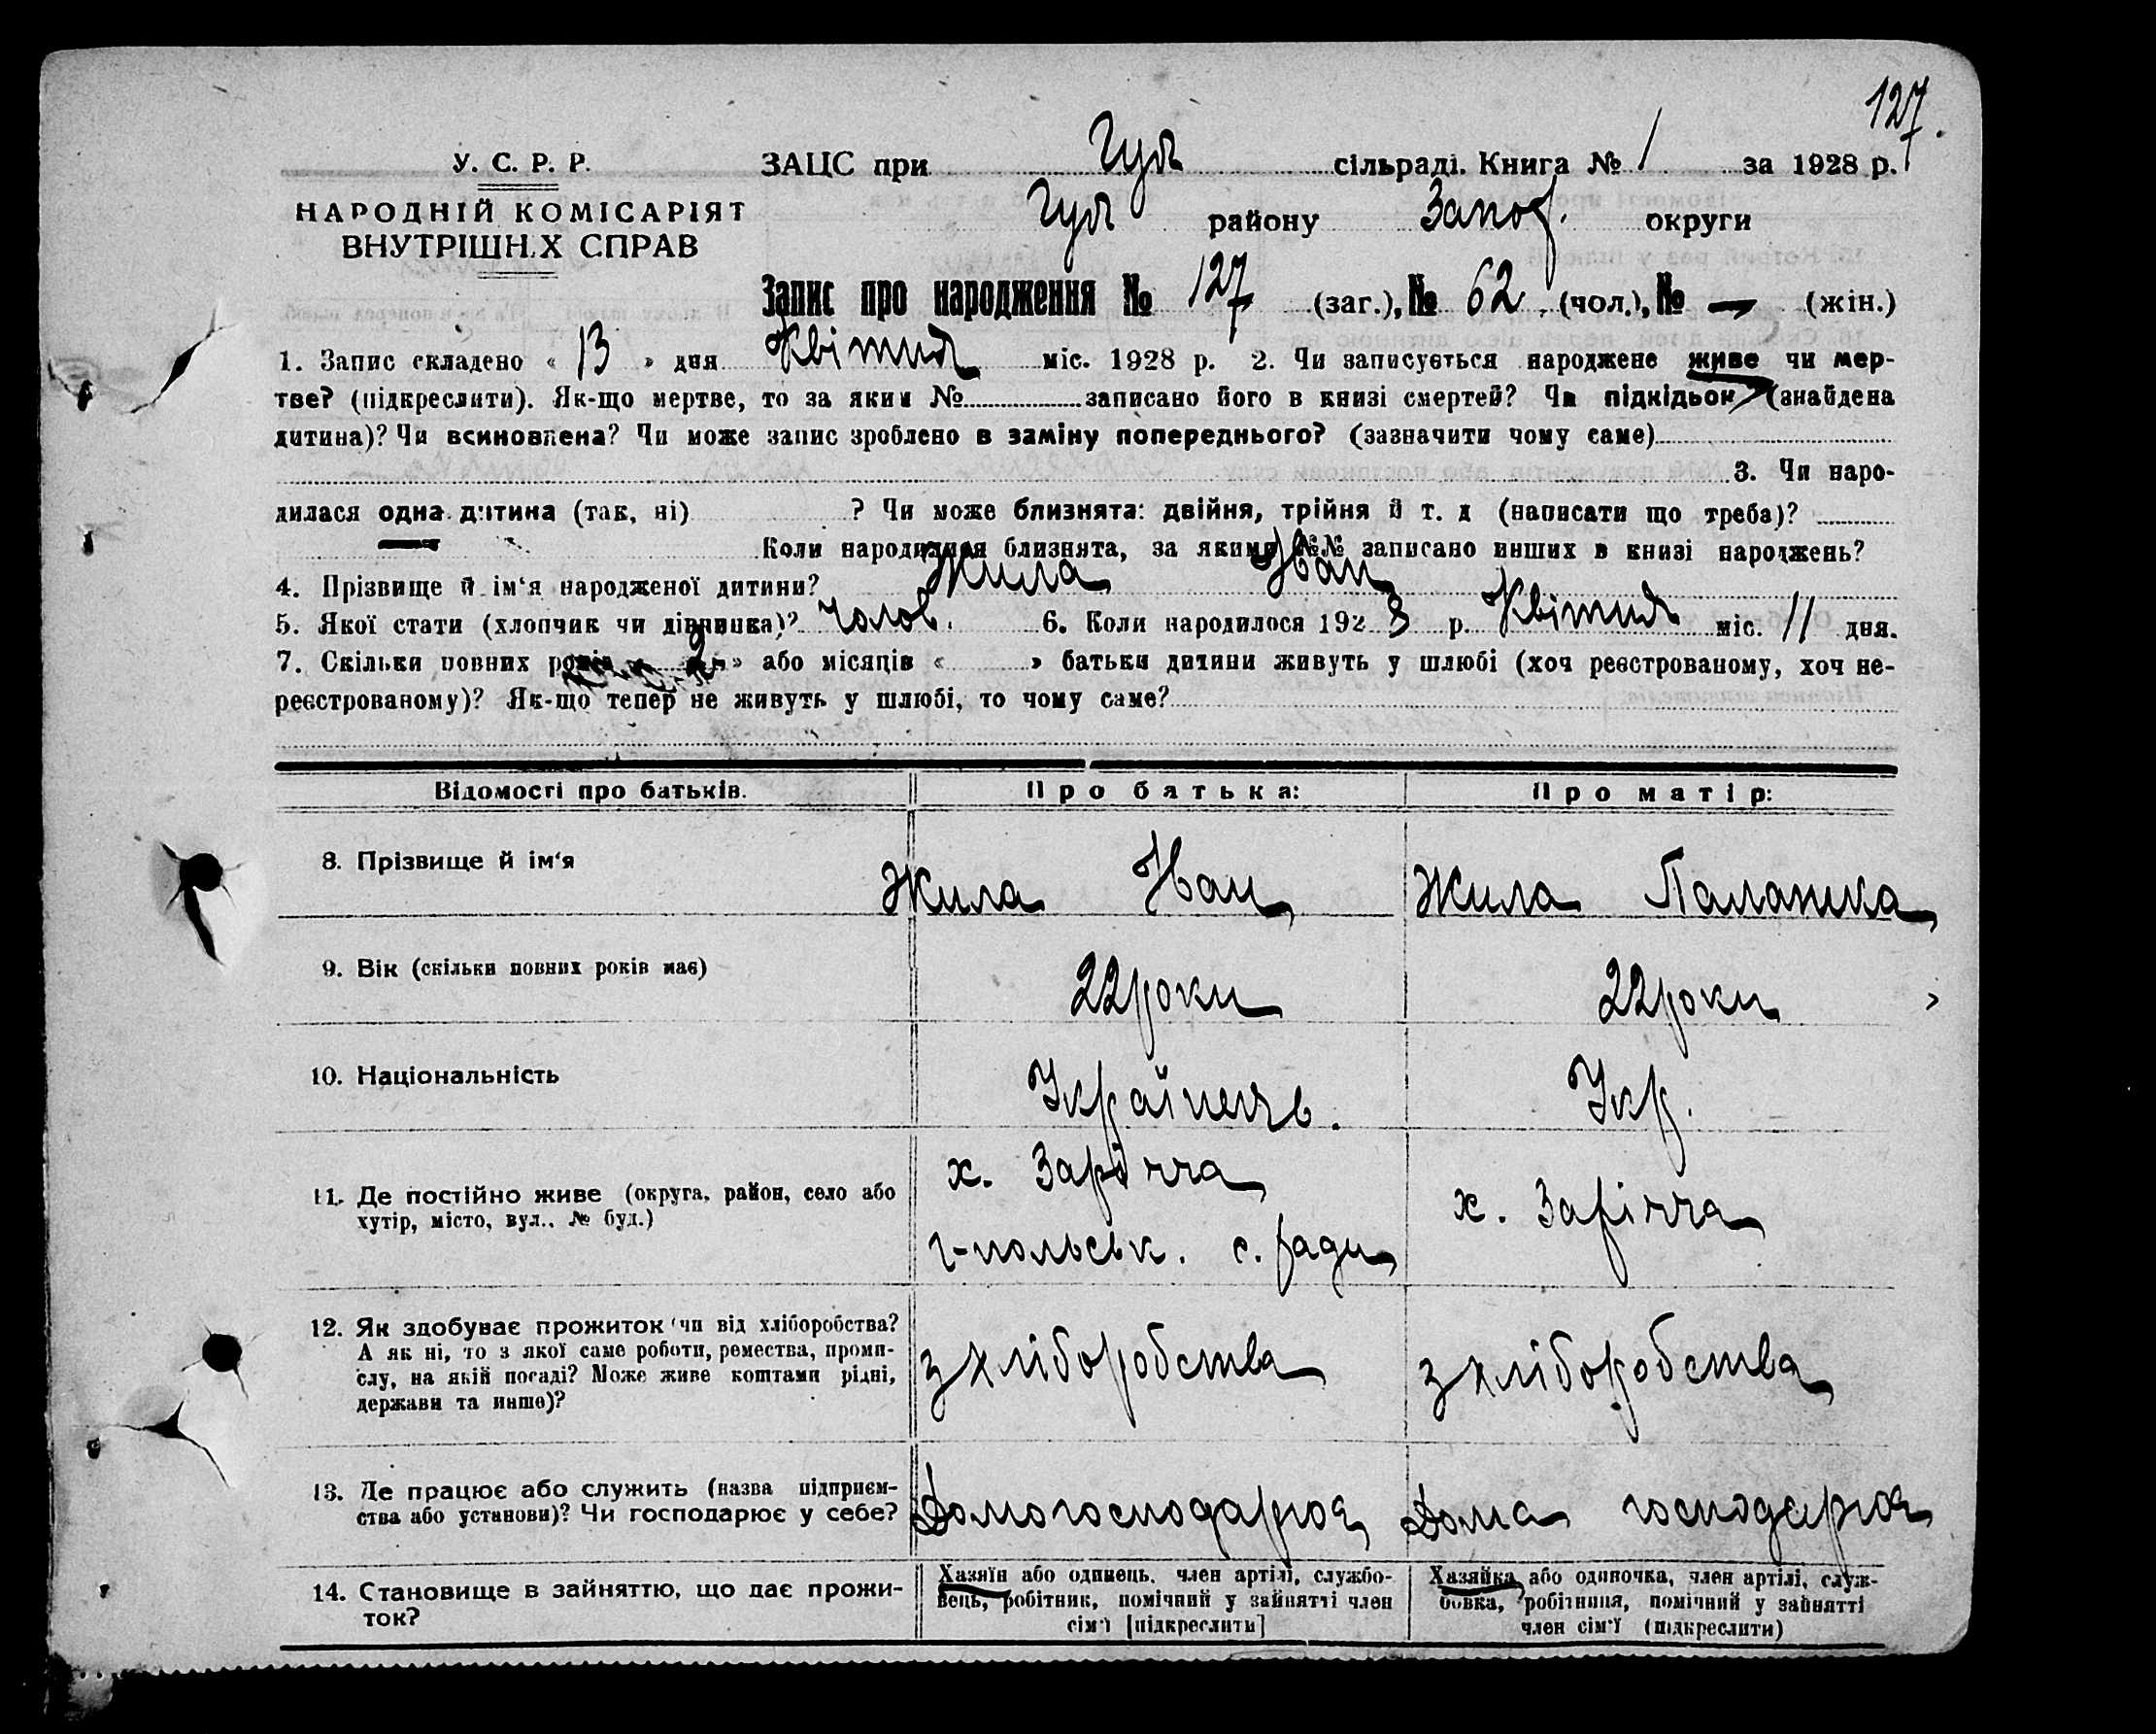 127.
У. С. Р. Р.
НАРОДНІЙ КОМІСАРІЯТ
ВНУТРІШН.Х СПРАВ
ЗАЦС при Гул сільраді. Книга № 1 за 1928 р.
Гул району Запор. округи
Запис про народження № 127 (заг.), № 62 (чол.), № — (жін.)
1. Запис складено « 13 » дня Квітня міс. 1928 р. 2. Чи записується народжене живе чи мер-
тве? (підкреслити). Як-що мертве, то за яким № записано його в книзі смертей? Чи підкідьок (знайдена
дитина)? Чи всиновлена? Чи може запис зроблено в заміну попереднього? (зазначити чому саме)
3. Чи наро-
дилася одна дитина (так, ні) ? Чи може близнята: двійня, трійня й т. д (написати що треба)?
Коли народилися близнята, за якими №№ записано инших в книзі народжень?
4. Прізвище й ім'я народженої дитини? Жила Іван
5. Якої стати (хлопчик чи дівчинка)? чолов. 6. Коли народилося 192 8 р. Квітня міс. 11 дня.
7. Скільки повних років 2 » або місяців « » батьки дитини живуть у шлюбі (хоч реєстрованому, хоч не-
реєстрованому)? Як-що тепер не живуть у шлюбі, то чому саме?
Відомості про батьків. Про батька: Про матір:
8. Прізвище й ім'я Жила Іван Жила Палашка
9. Вік (скільки повних років має) 22 роки 22 роки
10. Національність Українець. Укр.
11. Де постійно живе (округа, район, село або
хутір, місто, вул.. № буд.)
х. Зарічча
г-польськ. с. ради
х. Зарічча
12. Як здобуває прожиток (чи від хліборобства?
А як ні, то з якої саме роботи, ремества, проми-
слу, на якій посаді? Може живе коштами рідні,
держави та инше)?
з хліборобства з хліборобства
13. Де працює або служить (назва підприєм-
ства або установи)? Чи господарює у себе?
Домогосподарює Дома господарює
14. Становище в зайняттю, що дає прожи-
ток?
Хазяїн або одинець, член артілі, службо-
вець, робітник, помічний у зайнятті член
сім'ї [підкреслити]
Хазяйка або одиночка, член артілі, служ-
бовка, робітниця, помічний у зайнятті
член сім'ї (підкреслити)